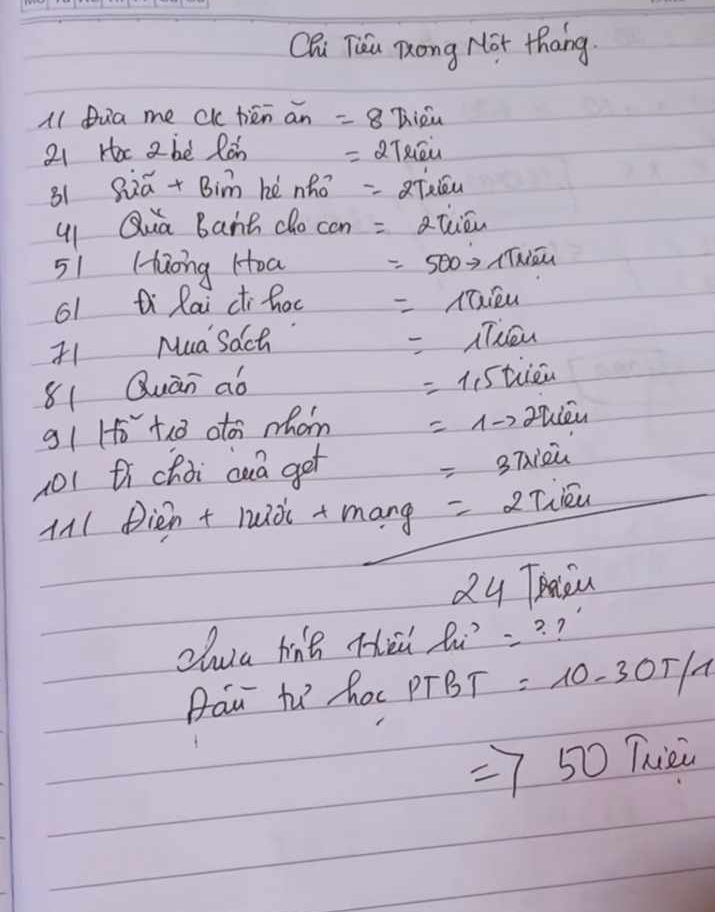 Chi Tiêu Trong Một tháng.
1/ Đưa mẹ ck tiền ăn = 8 Triệu
2/ Học 2 bé lớn = 2 Triệu
3/ Sữa + Bỉm bé nhỏ = 2 Triệu
4/ Quà Bánh cho con = 2 triệu
5/ Hương Hoa = 500 → 1 Triệu
6/ Đi lại đi học = 1 Triệu
7/ Mua Sách = 1 Triệu
8/ Quần áo = 1,5 triệu
9/ Hỗ trợ nhóm = 1 → 2 triệu
10/ Đi chơi cuả get = 3 Triệu
11/ Điện + nước + mạng = 2 Triệu
24 Triệu
chưa tính Hiếu hỉ = ??
Đầu tư học PTBT = 10 - 30T/1
=> 50 Triệu